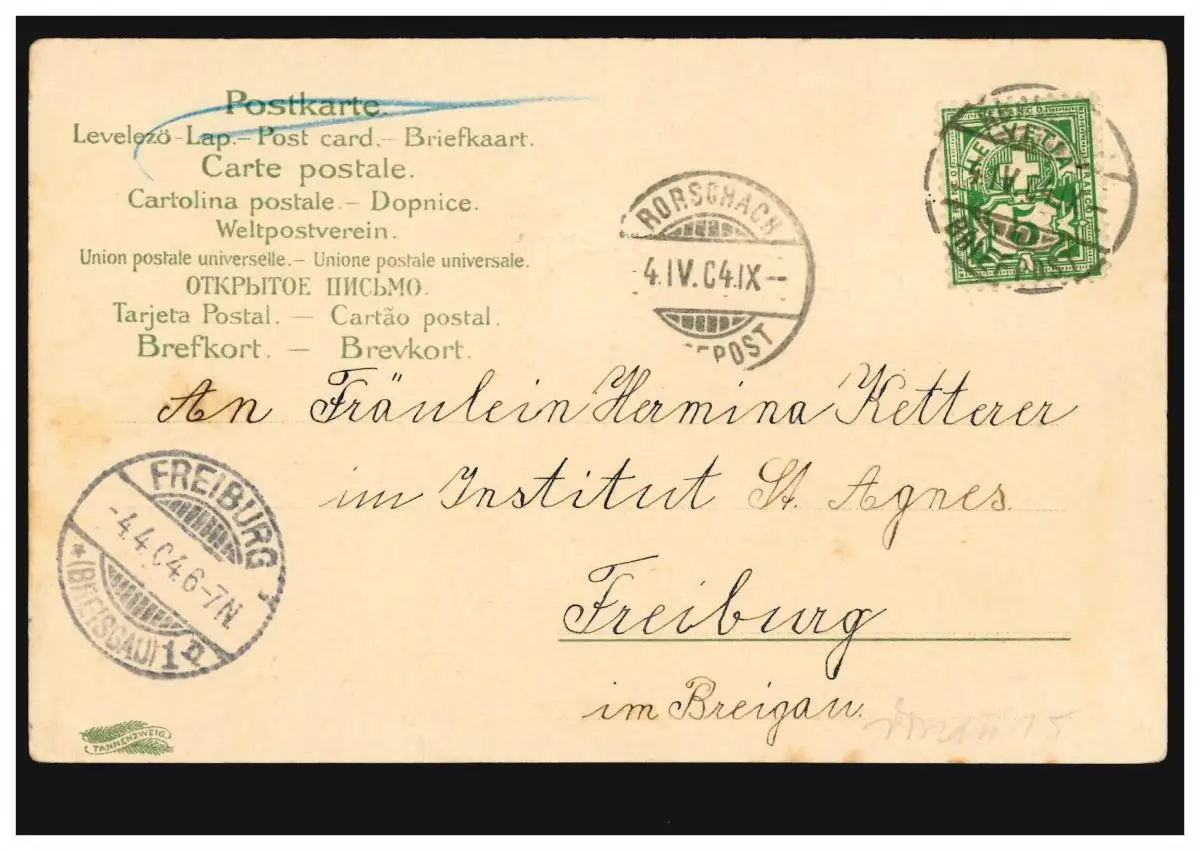 Postkarte.
Levelezö-Lap.– Post card.– Briefkaart.
Carte postale.
Cartolina postale. – Dopnice.
Weltpostverein.
Union postale universelle. – Unione postale universale.
ОТКРЫТОЕ ПИСЬМО.
Tarjeta Postal. — Cartão postal.
Brefkort. — Brevkort.
HELVETIA
5
RORSCHACH
4.IV.04.IX--
An Fräulein Hermina Ketterer
im Institut St. Agnes
Freiburg
im Breigau.
FREIBURG
-4.4.04.6-7N.
* (BREISGAU) 1
TANNENZWEIG